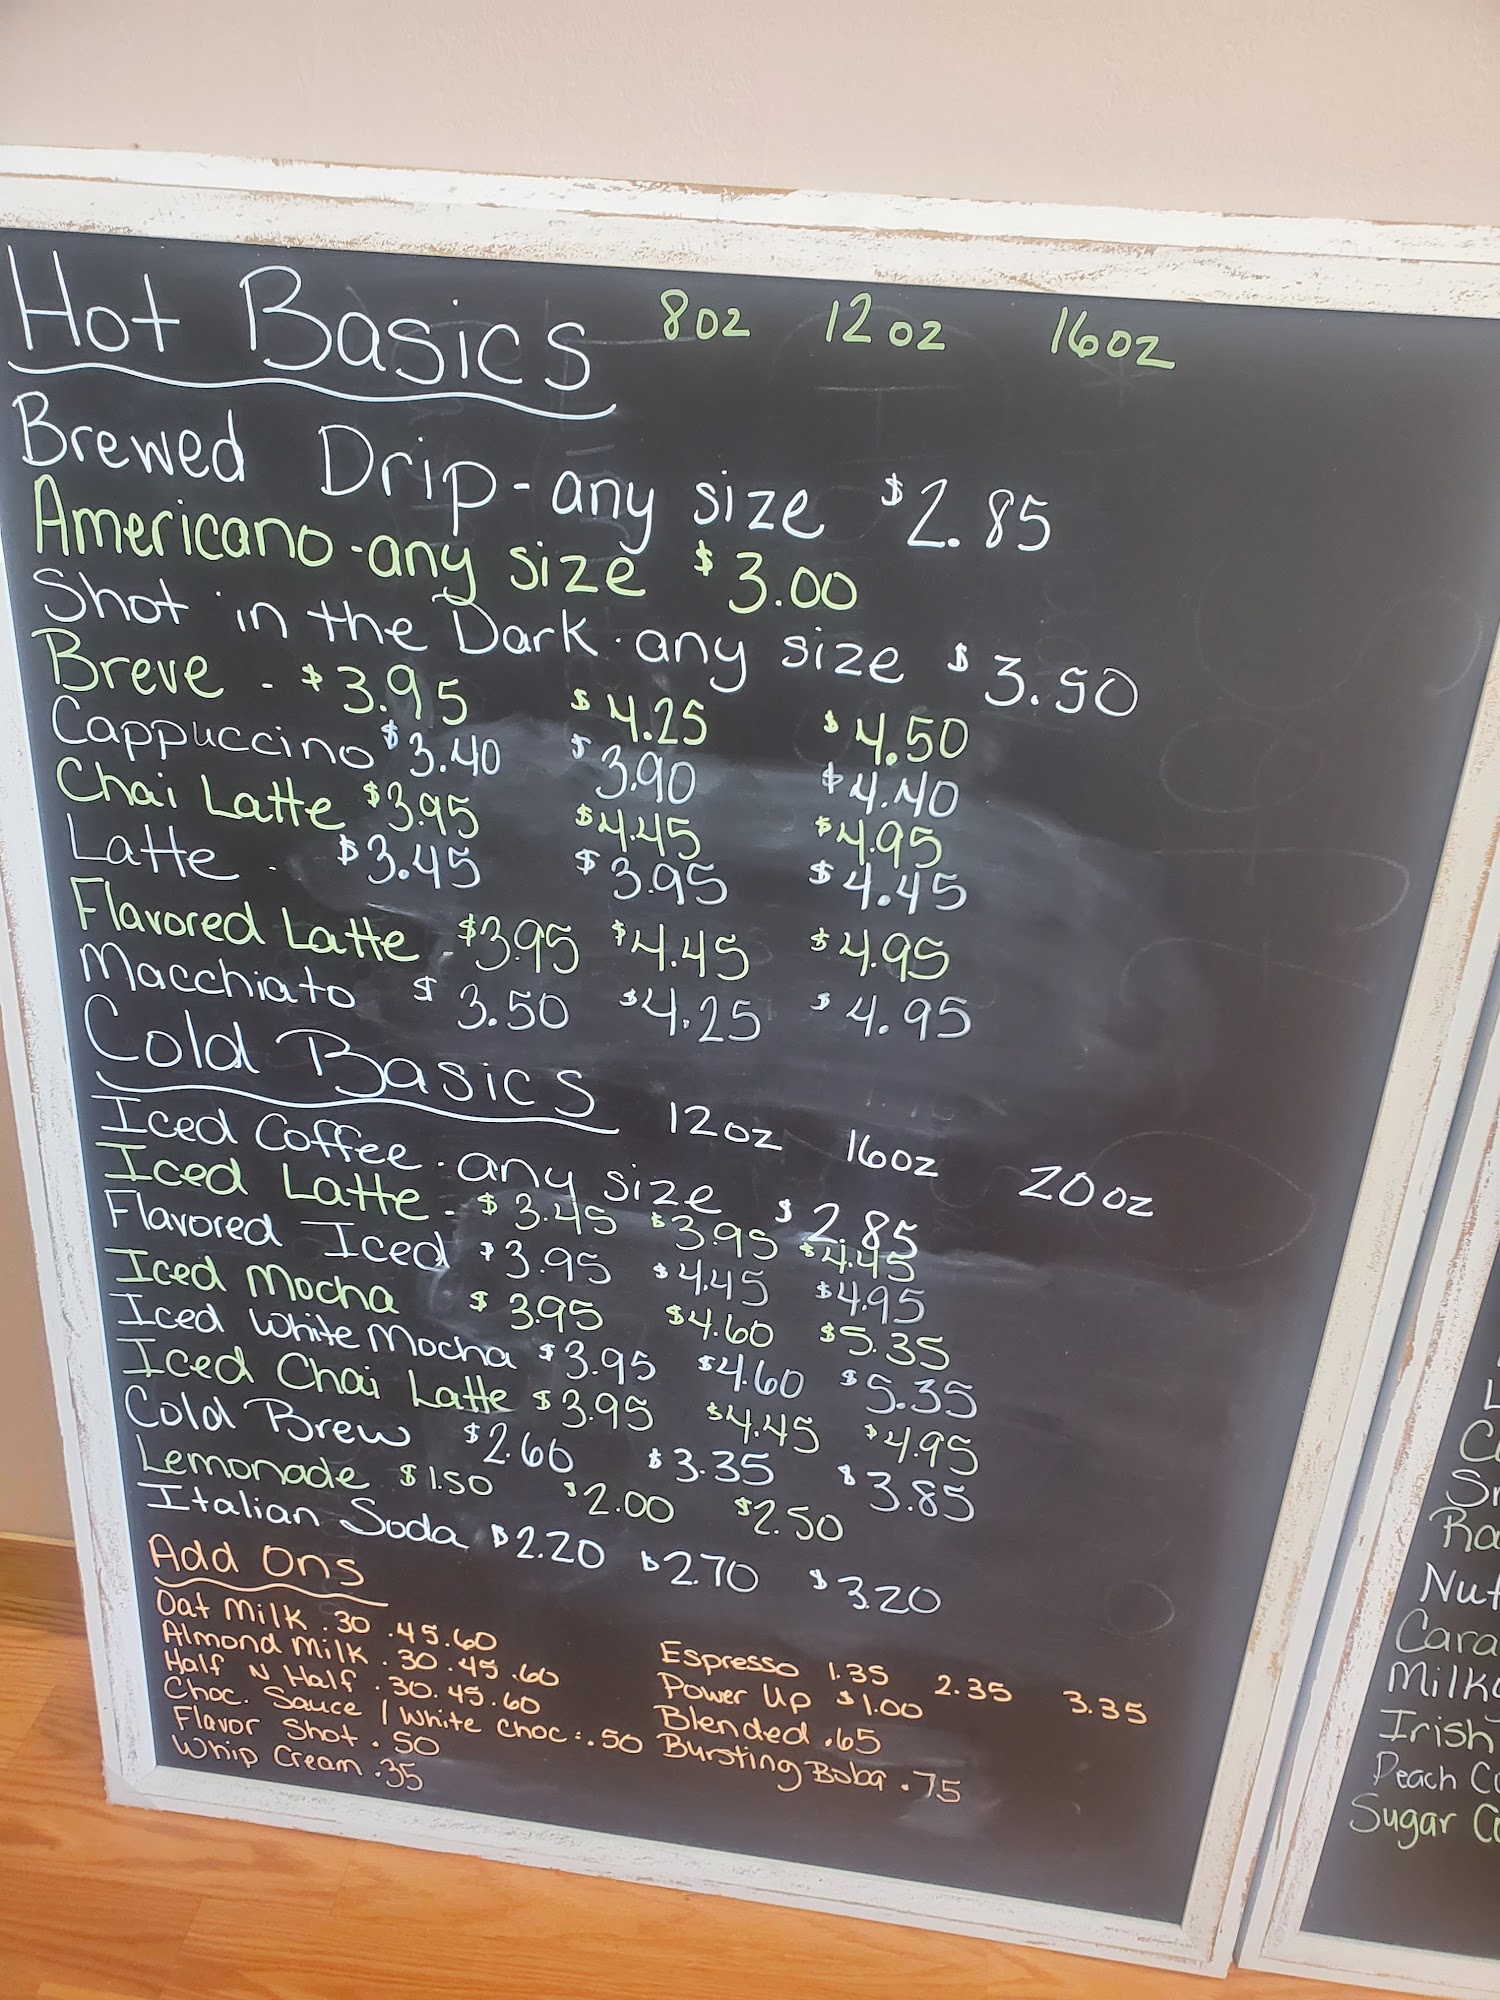 Hot Basics 8oz 12oz 16oz
Brewed Drip - any size $2.85
Americano - any size $3.00
Shot in the Dark - any size $3.50
Breve - $3.95 $4.25 $4.50
Cappuccino $3.40 $3.90 $4.40
Chai Latte $3.95 $4.45 $4.95
Latte - $3.45 $3.95 $4.45
Flavored Latte - $3.95 $4.45 $4.95
Macchiato $3.50 $4.25 $4.95
Cold Basics 12oz 16oz 20oz
Iced Coffee - any size $2.85
Iced Latte - $3.45 $3.95 $4.45
Flavored Iced $3.95 $4.45 $4.95
Iced Mocha $3.95 $4.60 $5.35
Iced White Mocha $3.95 $4.60 $5.35
Iced Chai Latte $3.95 $4.45 $4.95
Cold Brew $2.60 $3.35 $3.85
Lemonade $1.50 $2.00 $2.50
Italian Soda $2.20 $2.70 $3.20
Add Ons
Oat Milk .30 .45 .60
Almond Milk .30 .45 .60
Half N Half .30 .45 .60
Choc. Sauce / White Choc. .50
Flavor Shot .50
Whip Cream .35
Espresso 1.35 2.35 3.35
Power Up $1.00
Blended .65
Bursting Boba .75
Nut
Cara
Milky
Irish
Peach Co
Sugar Co